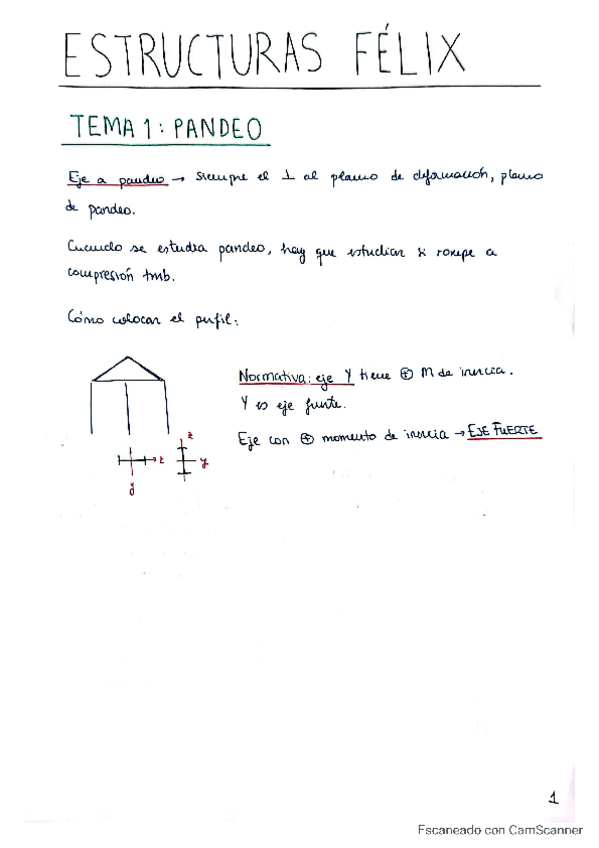 ESTRUCTURAS FÉLIX
TEMA 1: PANDEO
Eje a pandeo → siempre el ⊥ al plano de deformación, plano
de pandeo.
Cuando se estudia pandeo, hay que estudiar si rompe a
compresión tmb.
Cómo colocar el perfil:
Normativa: eje Y tiene ⊕ M de inercia.
Y es eje fuerte.
Eje con ⊕ momento de inercia → EJE FUERTE
z
z
y
y
1
Escaneado con CamScanner